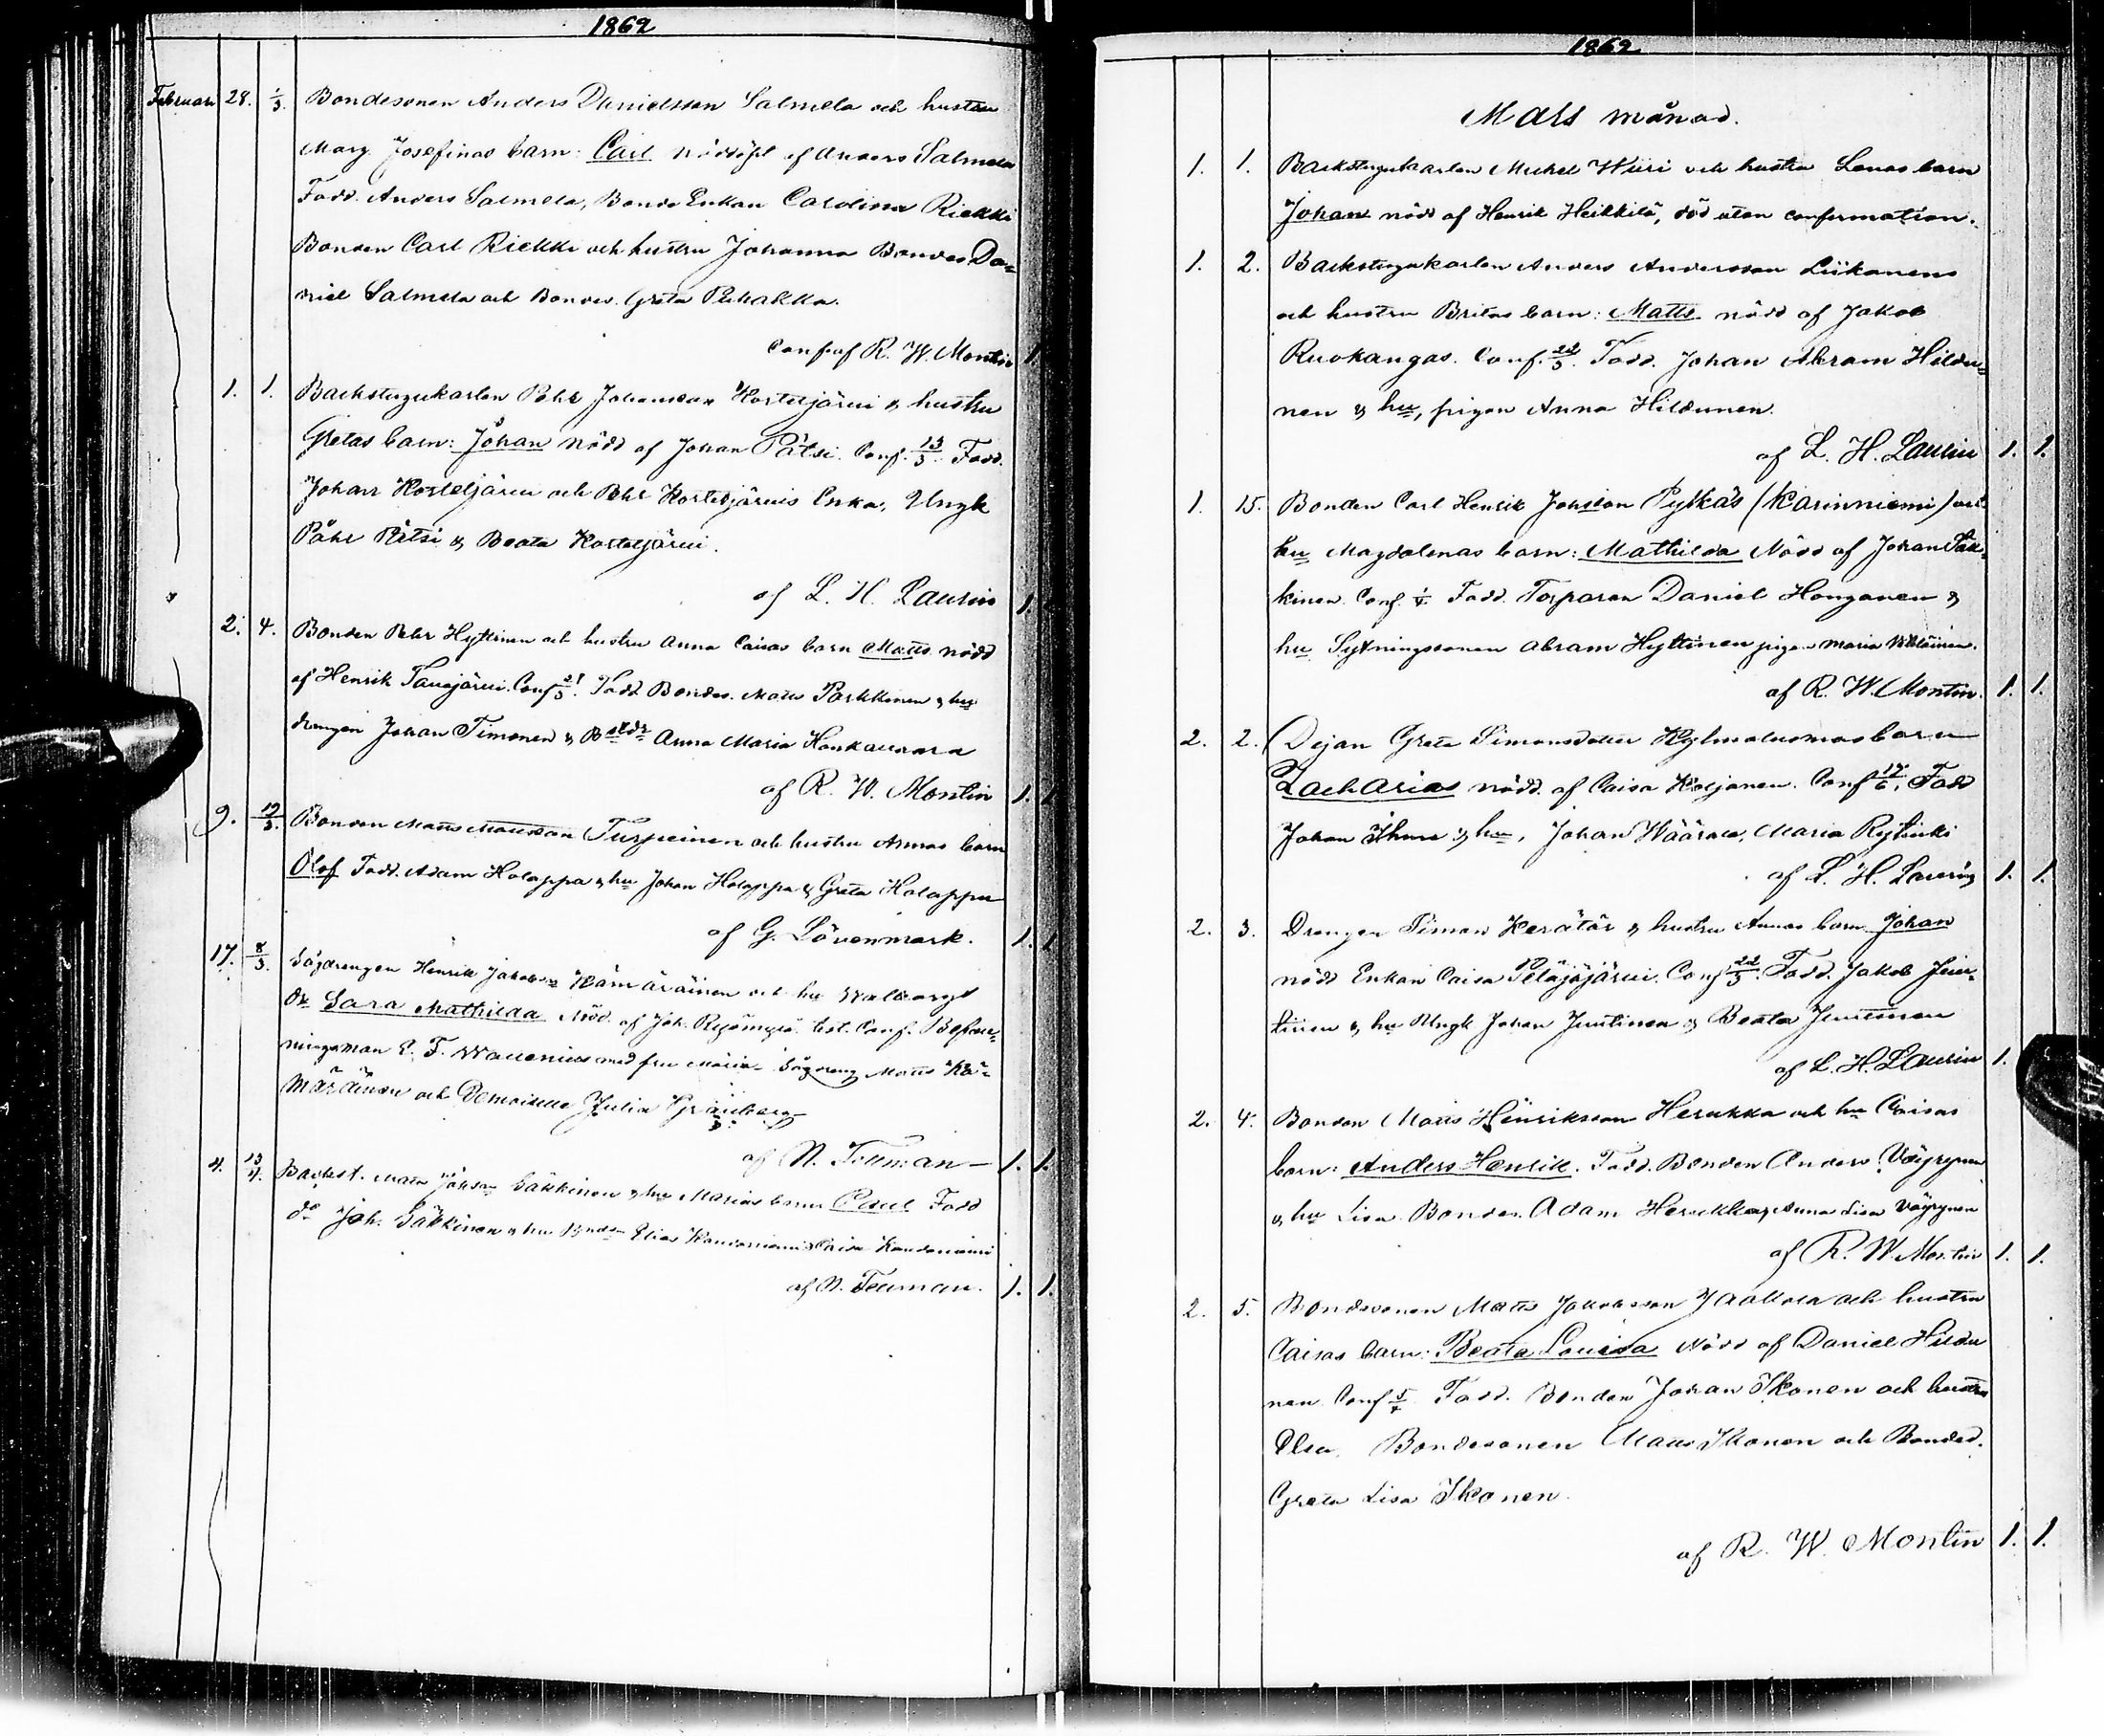 1862
Februari 28. 1/3. Bondesonen Anders Danielsson Salmela och hustru
Marg. Josefinas barn: Carl nöddöpt af Anders Salmela
Fadd. Anders Salmela, Bonde Enkan Carolina Riekki
Bonden Carl Riekki och hustru Johanna Bondes. Da-
niel Salmela och Bondes. Greta Puhakka.
Conf. af R. W. Montin 1.
1. 1. Backstugukarlen Pehr Johansson Kostetjärvi & hustru
Gretas barn: Johan nödd af Johan Pätsi. Conf. 13/3. Fadd.
Johan Kostetjärvi och Pehr Kostetjärvis Enka, Yngk
Påhr Pätsi & Beata Kostetjärvi.
af L. H. Laurin 1.
2. 4. Bonden Pehr Hyttinen och hustru Anna Caisas barn Matts nödd
af Henrik Tauajärvi. Conf 21/3. Fadd Bondes. Matts Parkkinen & hu
drengen Johan Timonen & Anna Maria Honkavaara
af R. W. Montin 1. 1
9. 19/3. Bonden Matts Mattsson Turpeinen och hustru Annas barn
Olof Fadd. Adam Holappa & hu Johan Holappa & Greta Holappa
af G. Lövenmark. 1. 1
17. 8/3. Sågdrengen Henrik Jakobsn Kämäräinen och hu Walborgs
dr Sara Mathilda Nöd. af Joh. Est. Conf. Befall-
ningsman E. F. Wallenius med fru Maria Sågdreng Matts Kä-
märäinen och Demoiselle Julia Gränberg
af N. Tollman 1. 1.
4. 13/4. Backst. Matts Johsn Säkkinen & hu Marias barn Paul Fadd
do Joh. Säkkinen & hu Elias Kandoniemi & Caisa Kandoniemi
af N. Tollman. 1. 1.
1862
Mars månad.
1. 1. Backstugukarlen Michel Wiiri och hustru Lenas barn
Johan nödd af Henrik Heikkilä, död utan confirmation.
1. 2. Backstugukarlen Anders Andersson Liikanens
och hustru Britas barn: Matts nödd af Jakob
Ruokangas. Conf. 22/3. Fadd. Johan Abram Hildu-
nen & hu, pigan Anna Hildunen.
af L. H. Laurin 1. 1.
1. 15. Bonden Carl Henrik Johsson Pylkäs (Karinniemi) och
hu Magdalenas barn: Mathilda Nödd af Johan Säk-
kinen. Conf. Fadd. Torparen Daniel Honganen &
hu Sytningssonen Abram Hyttinen pigan Maria
af R. W. Montin. 1. 1.
2. 2. Dejan Greta Simonsdotter Kylmäluomas barn
Zacharias nödd. af Caisa Kotjonen. Conf 17/6. Fadd
Johan & hu, Johan Määttä, Maria Rytinki
af L. H. Laurin 1. 1.
2. 3. Drengen Simon Kerätär & hustru Annas barn Johan
nödd Enkan Caisa Petäjäjärvi. Conf 22/3. Fadd. Jakob Jun-
tinen & hu Ungk Johan Juntinen & Beata Juntinen
af L. H. Laurin 1.
2. 4. Bonden Matts Henriksson Herukka och hu Caisas
barn: Anders Henrik. Fadd. Bonden Anders Väyrynen
& hu Lisa. Bondes. Adam Herukka & Anna Lisa Väyrynen
af R. W. Montin 1. 1.
2. 5. Bondesonen Matts Jakobsson Jaakkola och hustru
Caisas barn: Beata Lovisa Nödd af Daniel Hildu
nen Conf 5/4 Fadd. Bonden Johan Ikonen och hustru
Elsa. Bondesonen Matts Ikonen och Bonded.
Greta Lisa Ikonen.
af R. W. Montin 1. 1.